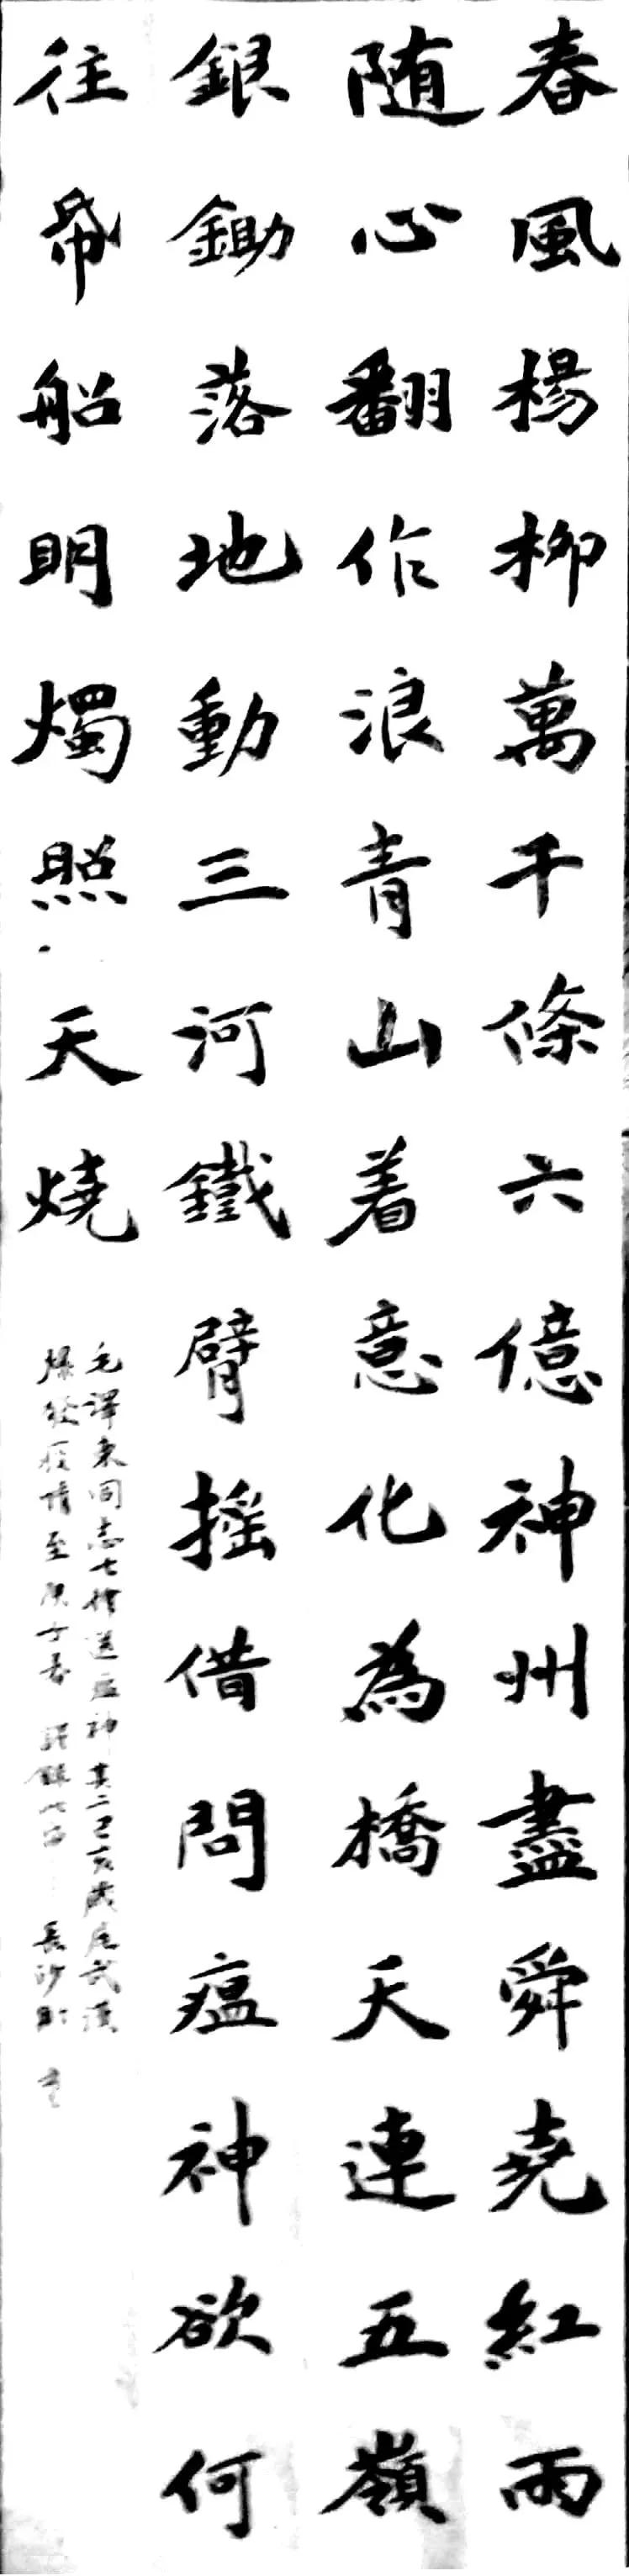 春風楊柳萬千條六億神州盡舜堯紅雨
随心翻作浪青山着意化為橋天連五嶺
銀鋤落地動三河鐵臂摇借問瘟神欲何
往帋船明燭照天燒
毛澤東同志七律送瘟神其二己亥歲尾武漢
爆發疫情至庚子春 長沙